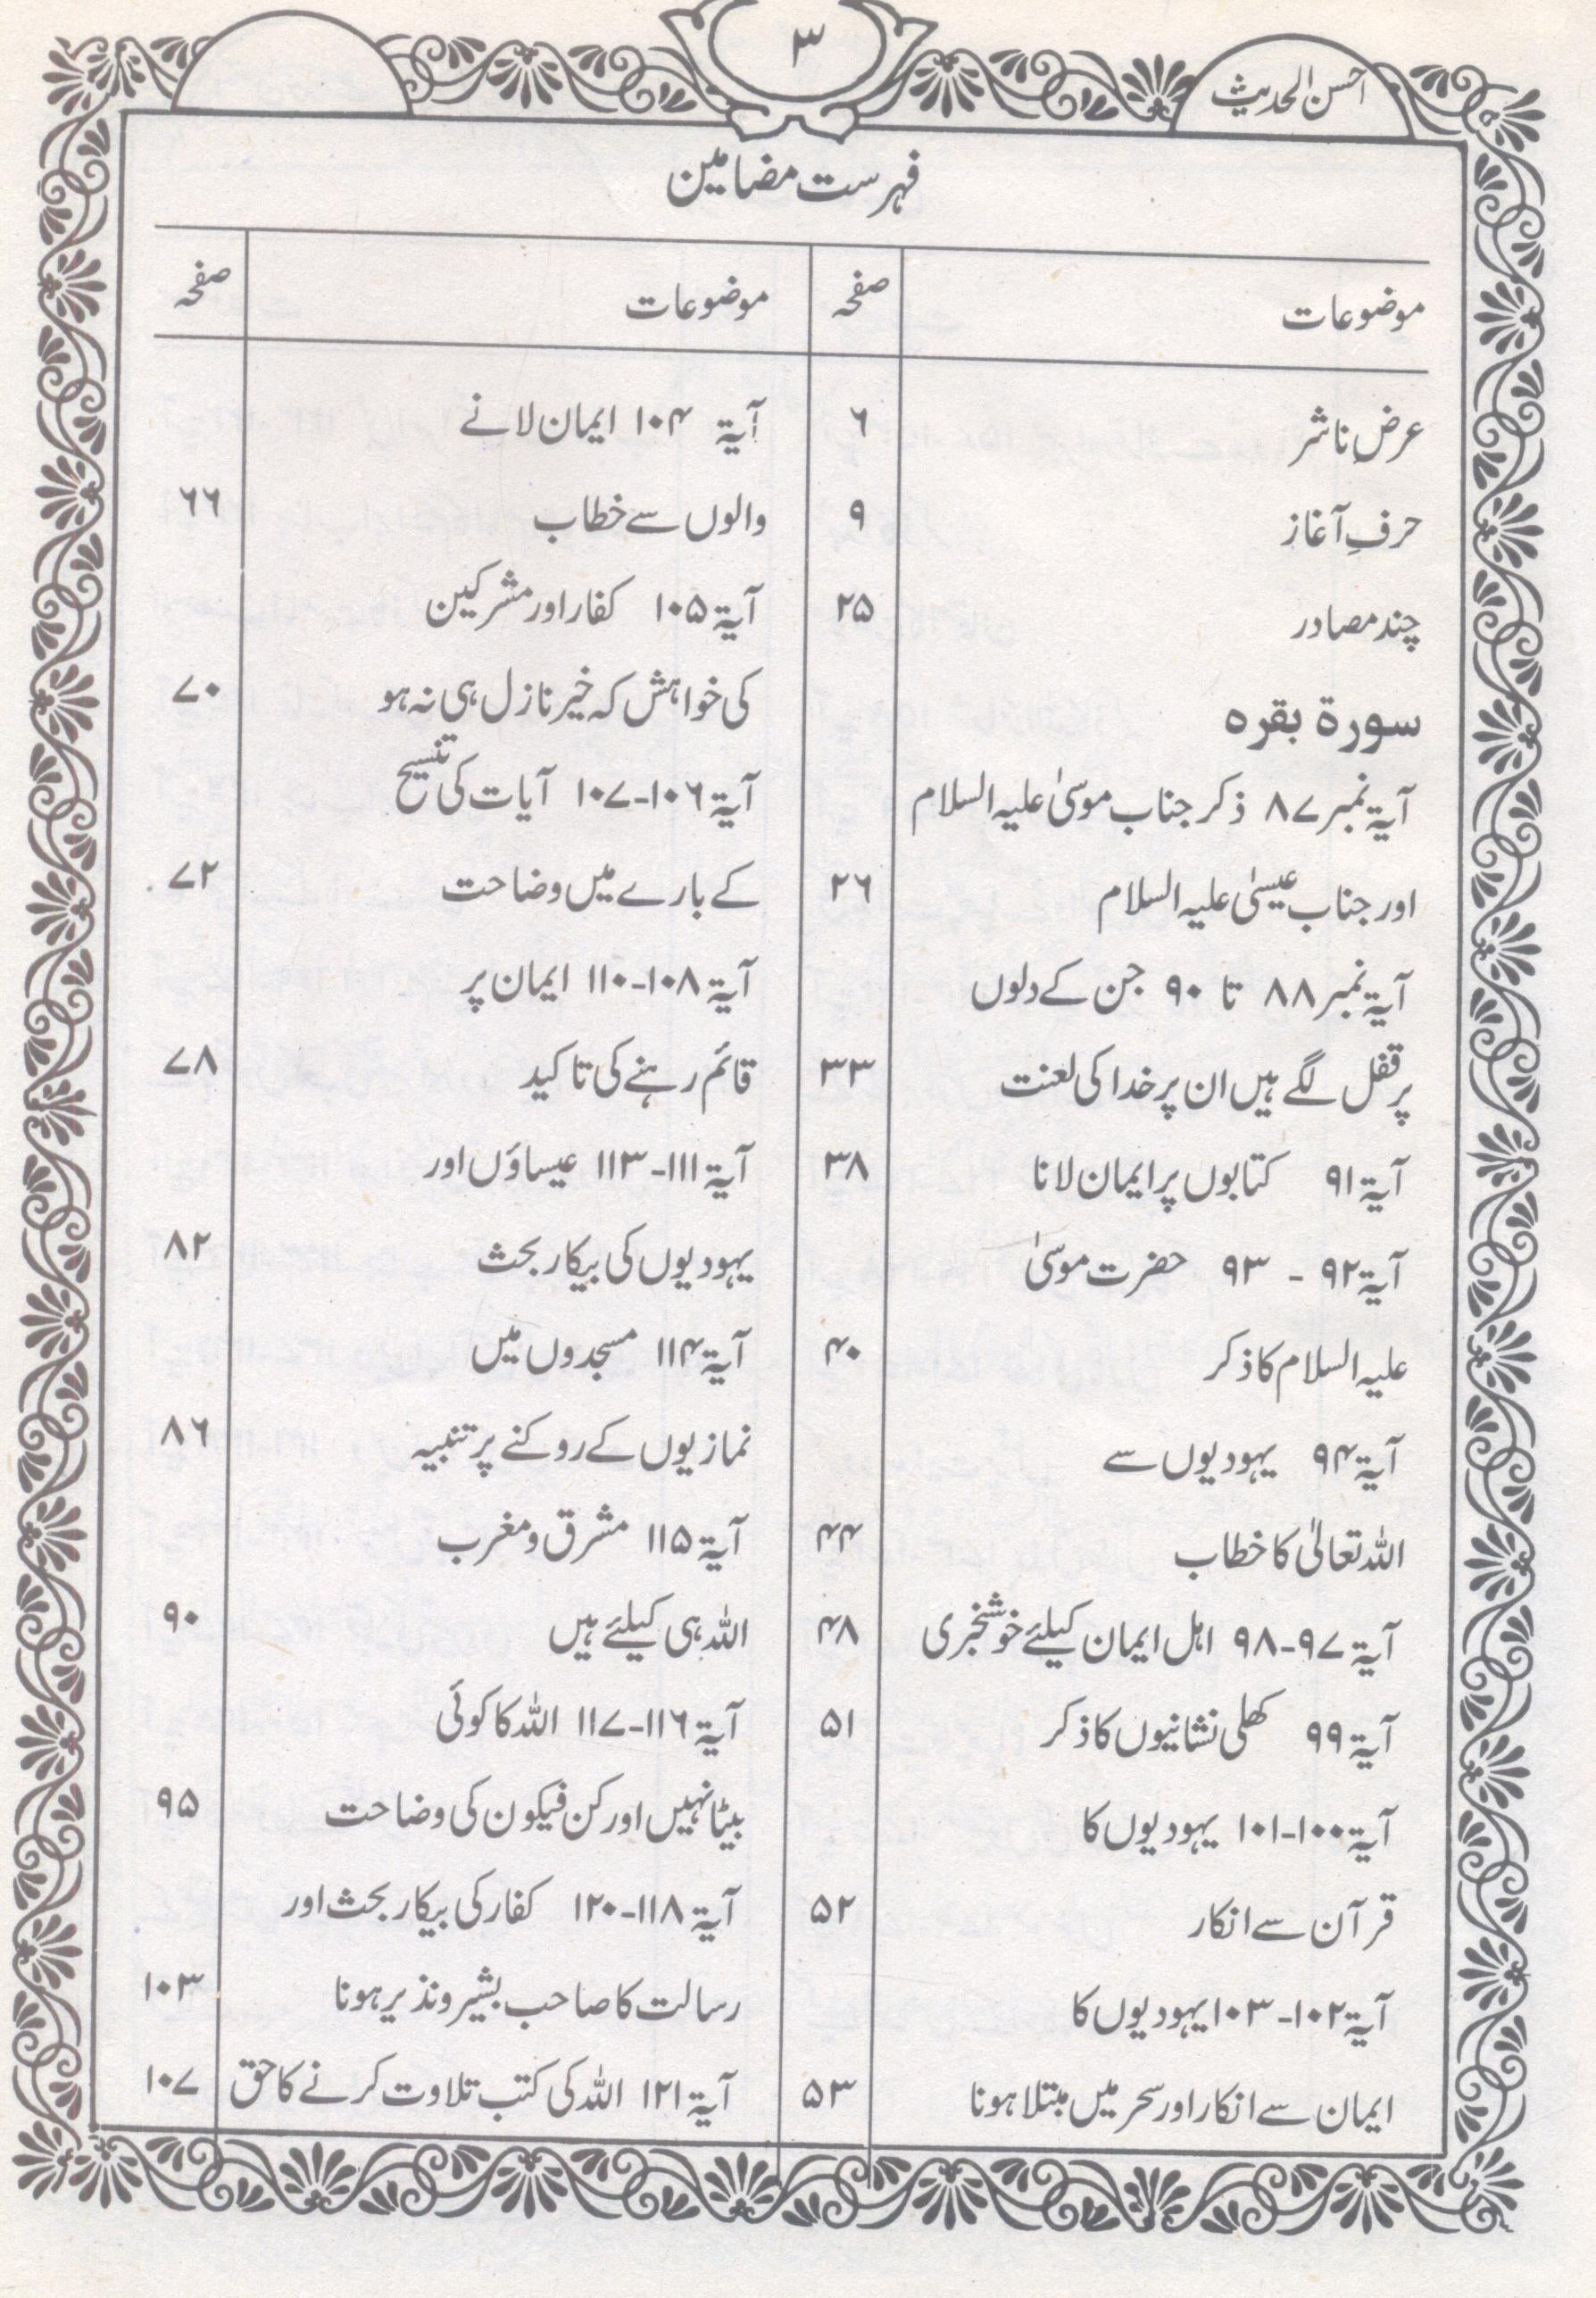 احسن الحدیث
۳
فہرست مضامین
موضوعات صفحہ
عرضِ ناشر ۶
حرفِ آغاز ۹
چند مصادر ۲۵
سورۃ بقرہ
آیۃ نمبر ۸۷ ذکر جناب موسیٰ علیہ السلام
اور جناب عیسیٰ علیہ السلام ۲۶
آیۃ نمبر ۸۸ تا ۹۰ جن کے دلوں
پر قفل لگے ہیں ان پر خدا کی لعنت ۳۳
آیۃ ۹۱ کتابوں پر ایمان لانا ۳۸
آیۃ ۹۲ - ۹۳ حضرت موسیٰ
علیہ السلام کا ذکر ۴۰
آیۃ ۹۴ یہودیوں سے
اللہ تعالیٰ کا خطاب ۴۴
آیۃ ۹۷-۹۸ اہل ایمان کیلئے خوشخبری ۴۸
آیۃ ۹۹ کھلی نشانیوں کا ذکر ۵۱
آیۃ ۱۰۰-۱۰۱ یہودیوں کا
قرآن سے انکار ۵۲
آیۃ ۱۰۲-۱۰۳ یہودیوں کا
ایمان سے انکار اور سحر میں مبتلا ہونا ۵۳
موضوعات صفحہ
آیۃ ۱۰۴ ایمان لانے
والوں سے خطاب ۶۶
آیۃ ۱۰۵ کفار اور مشرکین
کی خواہش کہ خیر نازل ہی نہ ہو ۷۰
آیۃ ۱۰۶-۱۰۷ آیات کی تنسیح
کے بارے میں وضاحت ۷۲
آیۃ ۱۰۸-۱۱۰ ایمان پر
قائم رہنے کی تاکید ۷۸
آیۃ ۱۱۱-۱۱۳ عیساؤں اور
یہودیوں کی بیکار بحث ۸۲
آیۃ ۱۱۴ مسجدوں میں
نمازیوں کے روکنے پر تنبیہ ۸۶
آیۃ ۱۱۵ مشرق و مغرب
اللہ ہی کیلئے ہیں ۹۰
آیۃ ۱۱۶-۱۱۷ اللہ کا کوئی
بیٹا نہیں اور کن فیکون کی وضاحت ۹۵
آیۃ ۱۱۸-۱۲۰ کفار کی بیکار بحث اور
رسالت کا صاحب بشیر و نذیر ہونا ۱۰۳
آیۃ ۱۲۱ اللہ کی کتب تلاوت کرنے کا حق ۱۰۷